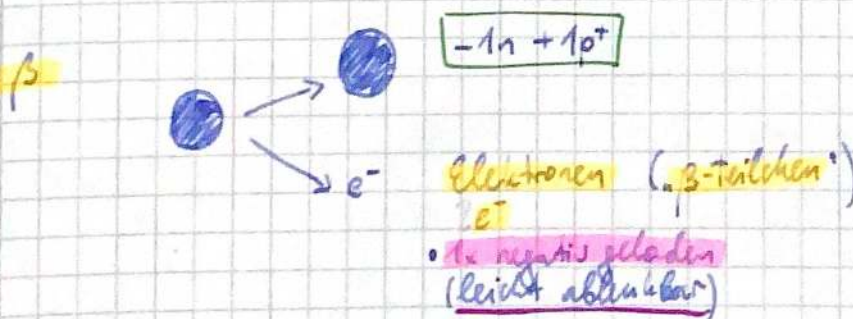 -1n + 1p⁺
β
e⁻
Elektronen („β-Teilchen“)
e⁻
• 1x negativ geladen
(leicht ablenkbar)